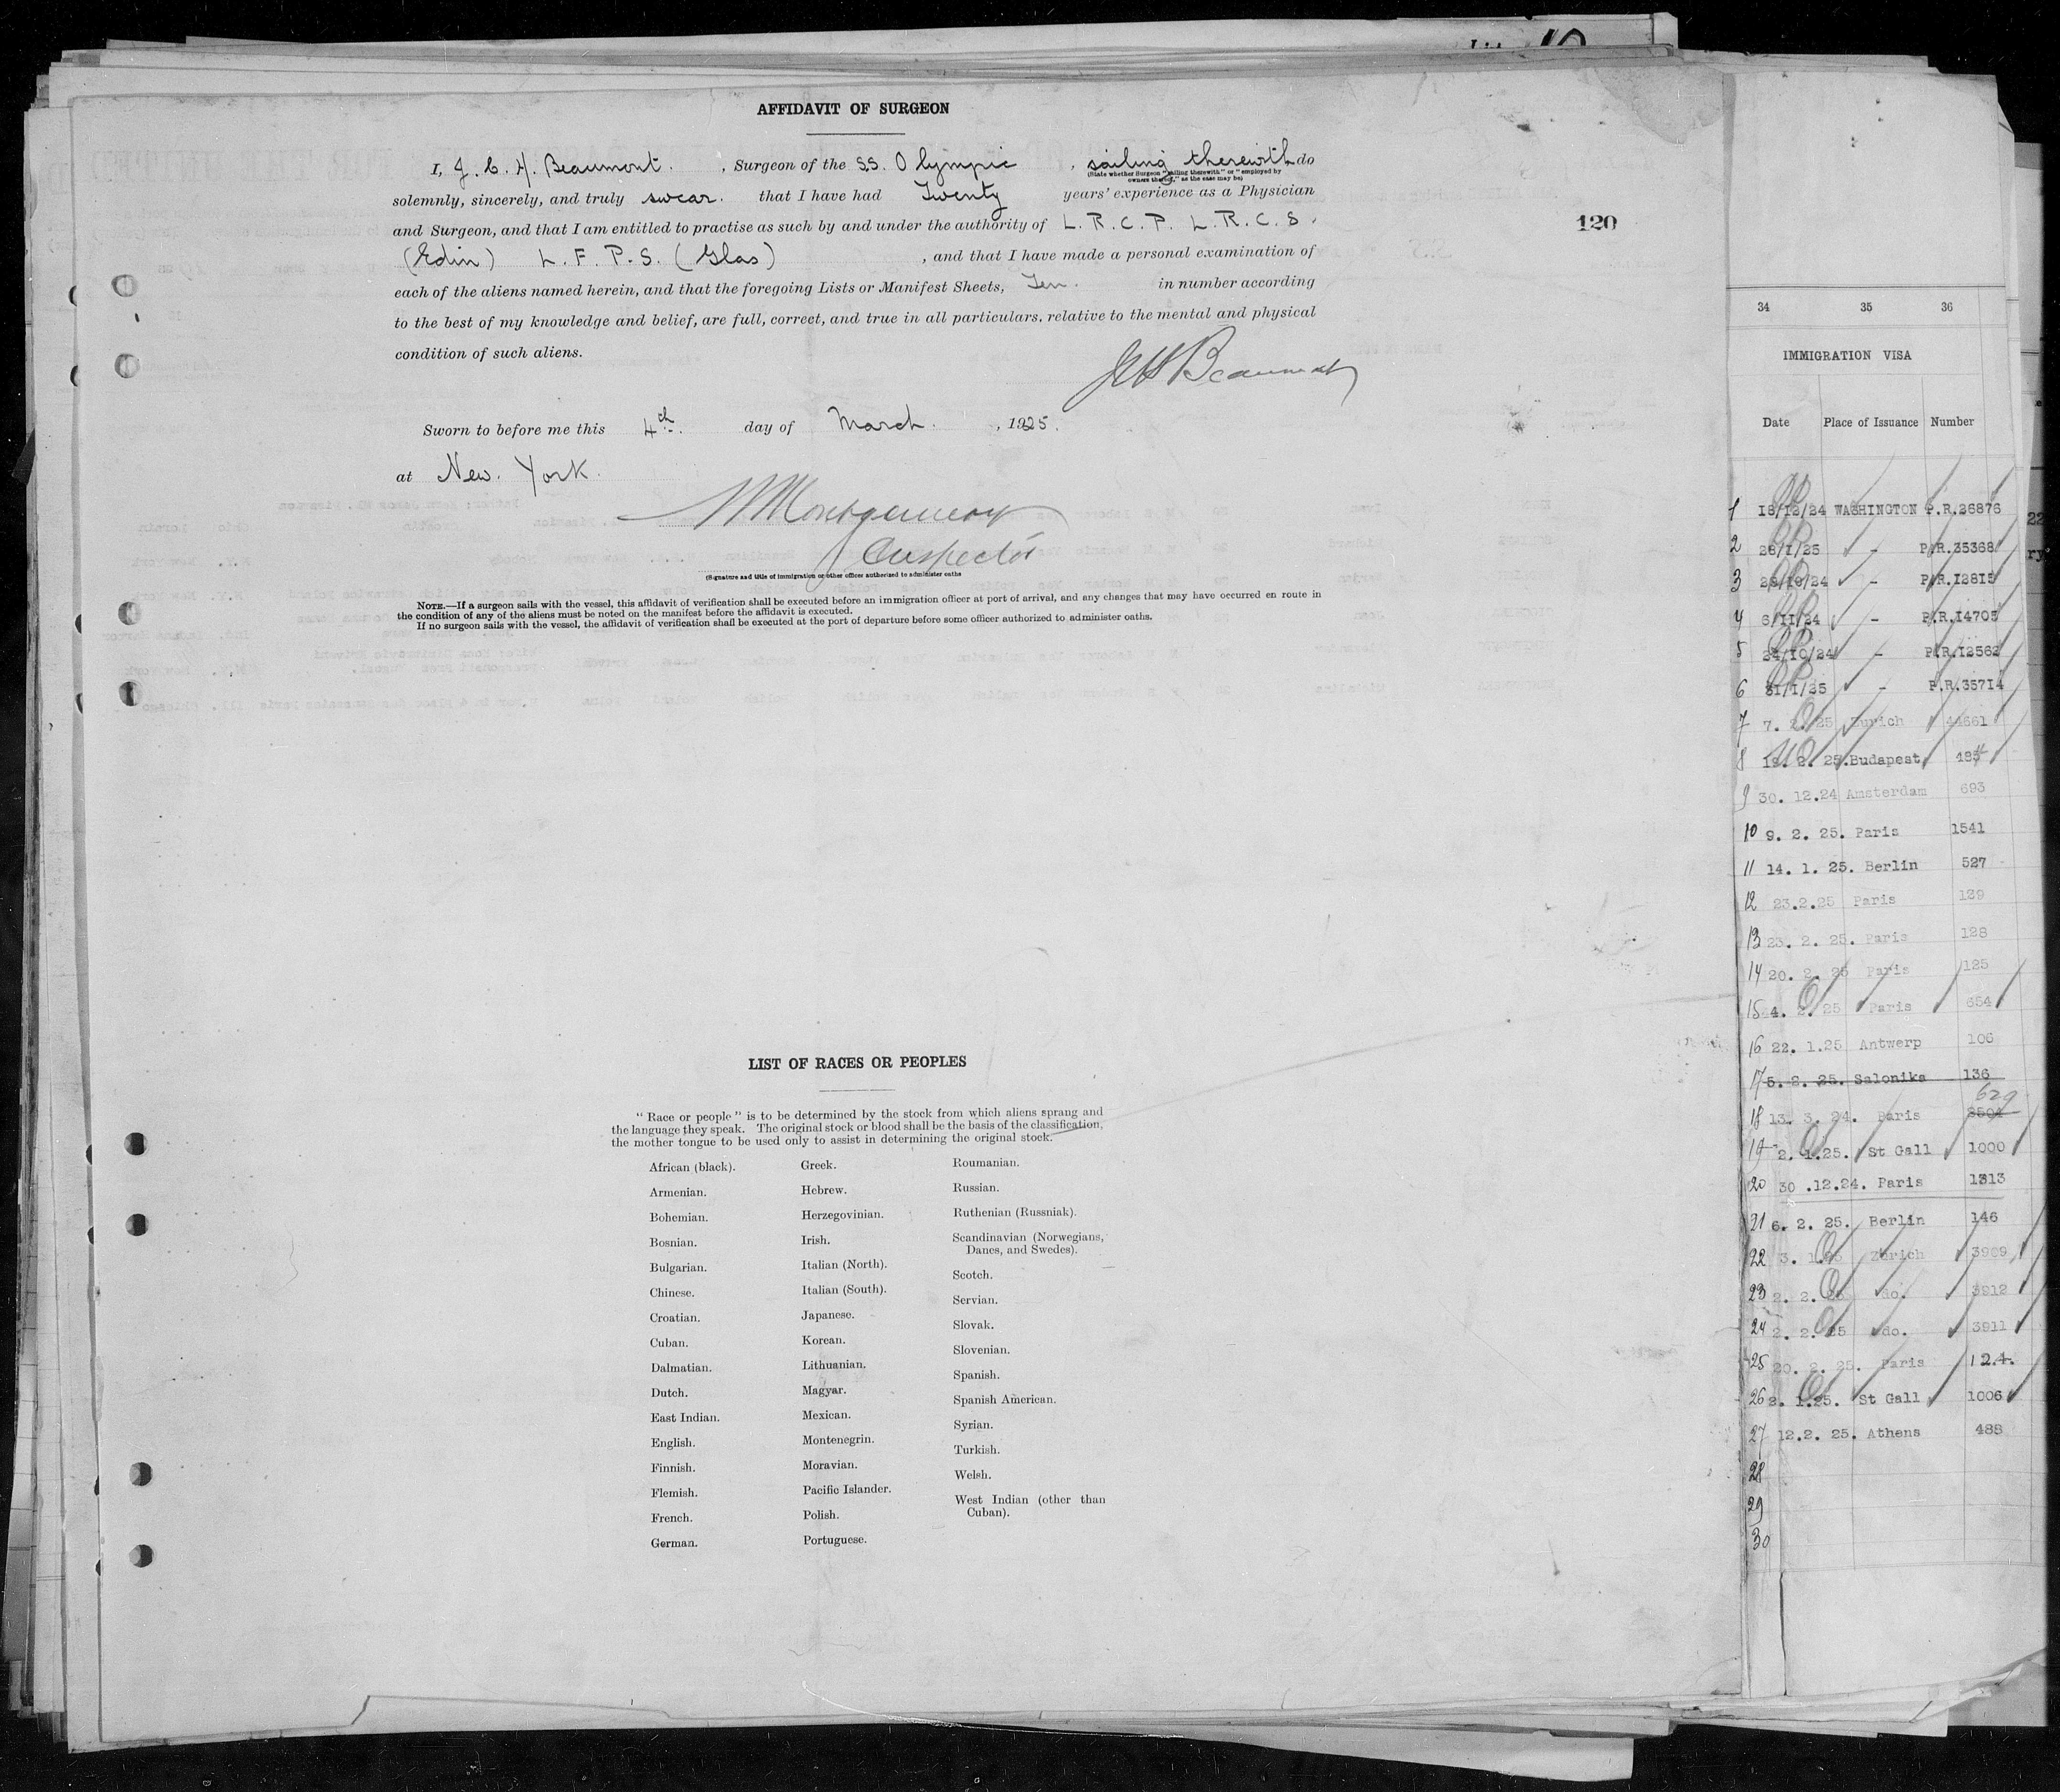 AFFIDAVIT OF SURGEON
I, J. C. H. Beaumont. , Surgeon of the SS. Olympic , sailing therewith do
(State whether Surgeon "sailing therewith" or "employed by
owners thereof," as the case may be)
solemnly, sincerely, and truly swear. that I have had Twenty years' experience as a Physician
and Surgeon, and that I am entitled to practise as such by and under the authority of L. R. C. P. L. R. C. S.
120
(Edin) L. F. P. S. (Glas) , and that I have made a personal examination of
each of the aliens named herein, and that the foregoing Lists or Manifest Sheets, Ten. in number according
to the best of my knowledge and belief, are full, correct, and true in all particulars. relative to the mental and physical
condition of such aliens.
JCH Beaumont
Sworn to before me this 4th. day of March. , 1925.
at New. York.
Montgomery
Inspector
(Signature and title of immigration or other officer authorized to administer oaths
NOTE.—If a surgeon sails with the vessel, this affidavit of verification shall be executed before an immigration officer at port of arrival, and any changes that may have occurred en route in
the condition of any of the aliens must be noted on the manifest before the affidavit is executed.
If no surgeon sails with the vessel, the affidavit of verification shall be executed at the port of departure before some officer authorized to administer oaths.
LIST OF RACES OR PEOPLES
"Race or people" is to be determined by the stock from which aliens sprang and
the language they speak. The original stock or blood shall be the basis of the classification,
the mother tongue to be used only to assist in determining the original stock.
African (black).
Armenian.
Bohemian.
Bosnian.
Bulgarian.
Chinese.
Croatian.
Cuban.
Dalmatian.
Dutch.
East Indian.
English.
Finnish.
Flemish.
French.
German.
Greek.
Hebrew.
Herzegovinian.
Irish.
Italian (North).
Italian (South).
Japanese.
Korean.
Lithuanian.
Magyar.
Mexican.
Montenegrin.
Moravian.
Pacific Islander.
Polish.
Portuguese.
Roumanian.
Russian.
Ruthenian (Russniak).
Scandinavian (Norwegians,
Danes, and Swedes).
Scotch.
Servian.
Slovak.
Slovenian.
Spanish.
Spanish American.
Syrian.
Turkish.
Welsh.
West Indian (other than
Cuban).
34 35 36
IMMIGRATION VISA
Date Place of Issuance Number
1 18/12/24 WASHINGTON P.R.26876
2 28/1/25 - P.R.35368
3 29/10/24 - P.R.12815
4 6/11/24 - P.R.14705
5 24/10/24 - P.R.12562
6 31/1/25 - P.R.35714
7 7. 2. 25 Zurich 44661
8 19. 2. 25. Budapest 485
9 30. 12.24 Amsterdam 693
10 9. 2. 25. Paris 1541
11 14. 1. 25. Berlin 527
12 23.2.25 Paris 129
13 23. 2. 25. Paris 128
14 20. 2. 25 Paris 125
15 4. 2. 25 Paris 654
16 22. 1.25 Antwerp 106
17 5. 2. 25. Salonika 136
18 13. 3. 24. Paris 629
19 2. 1.25. St Gall 1000
20 30 .12.24. Paris 1313
21 6. 2. 25. Berlin 146
22 3. 1.25 Zurich 3909
23 2. 2. 25 do. 3912
24 2. 2. 25 do. 3911
25 20. 2. 25. Paris 124.
26 2. 1.25. St Gall 1006
27 12.2. 25. Athens 488
28
29
30